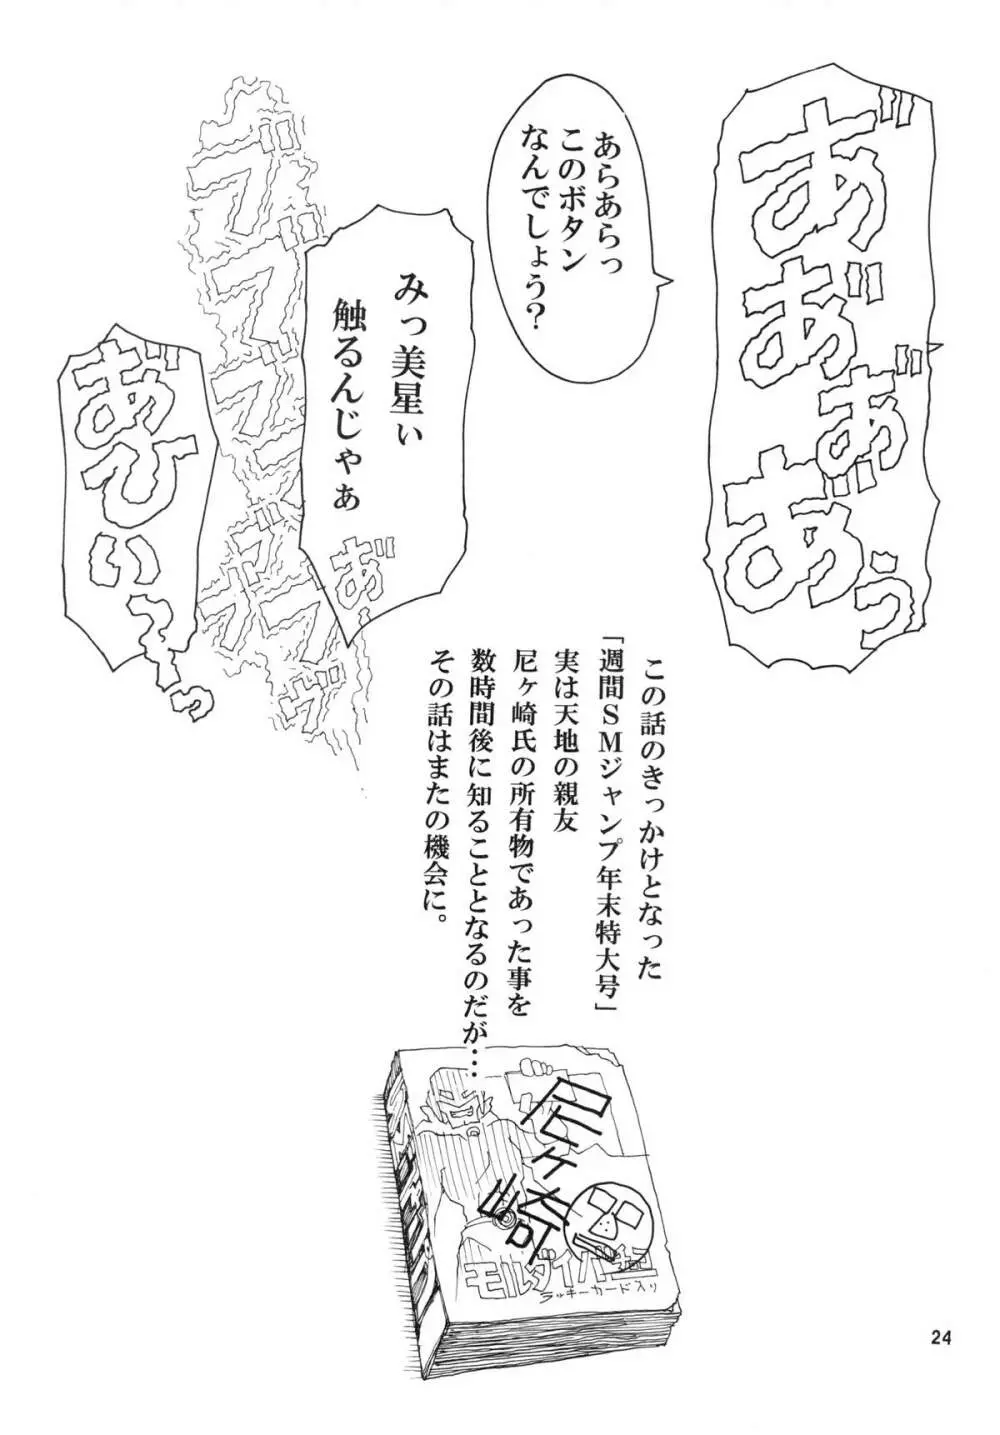 あ゛
あ゛
あ゛
あ゛ぅ
あらあらっ
このボタン
なんでしょう？
みっ美星ぃ
触るんじゃぁ
あ゛ー
あ゛ひいーっ
この話のきっかけとなった
「週間ＳＭジャンプ年末特大号」
実は天地の親友
尼ヶ崎氏の所有物であった事を
数時間後に知ることとなるのだが…
その話はまたの機会に。
尼ヶ崎
モルダイバー
ラッキーカード入り
24